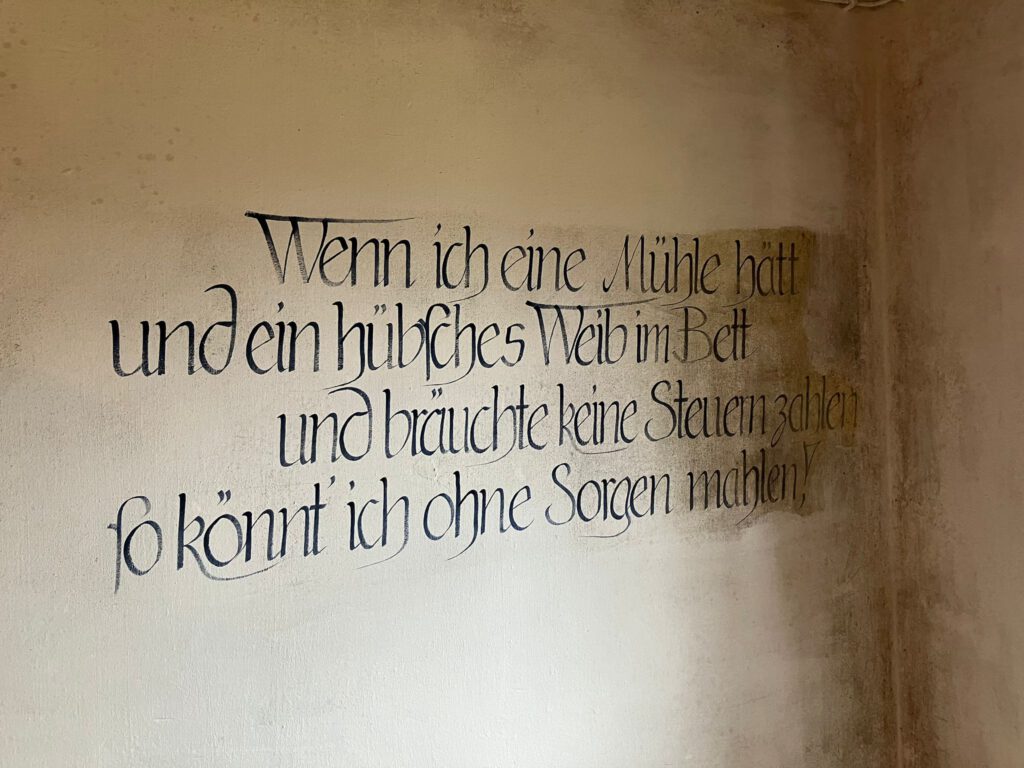 Wenn ich eine Mühle hätt
und ein hübſches Weib im Bett
und bräuchte keine Steuern zahlen
ſo könnt' ich ohne Sorgen mahlen!